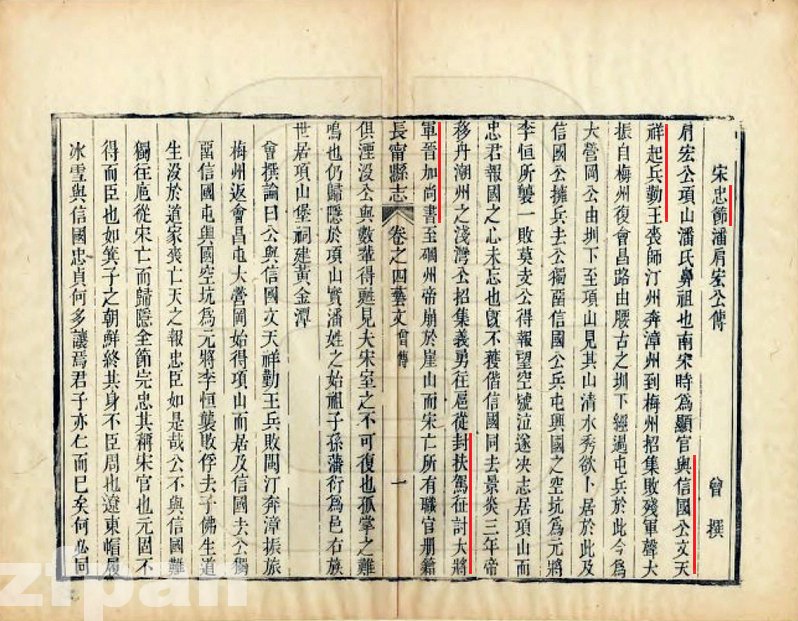 宋忠節潘肩宏公傳　曾撰
肩宏公項山潘氏鼻祖也南宋時為顯官與信國公文天
祥起兵勤王喪師汀州奔漳州到梅州招集敗殘軍聲大
振自梅州復會昌路由腰古之圳下經過屯兵於此今為
大營岡公由圳下至項山見其山清水秀欲卜居於此及
信國公擁兵去公獨畱信國公兵屯興國之空坑為元將
李恒所襲一敗莫支公得報望空號泣遂决志居項山而
忠君報國之心未忘也旣不獲偕信國同去景炎三年帝
移丹潮州之淺灣公招集義勇往扈從封扶駕征討大將
軍晉加尚書至碙州帝崩於崖山而宋亡所有職官册籍
長甯縣志　卷之四藝文　曾傳　一
俱湮沒公與數輩得甦見大宋室之不可復也孤掌之難
鳴也仍歸隱於項山實潘姓之始祖子孫藩衍為邑右族
世居項山堡祠建黃金潭
曾撰論曰公與信國文天祥勤王兵敗閩汀奔漳振旅
梅州返會昌屯大營岡始得項山而居及信國去公獨
畱信國屯興國空坑為元將李恒襲敗俘去子佛生道
生沒於道家喪亡天之報忠臣如是哉公不與信國難
獨往扈從宋亡而歸隱全節完忠其稱宋官也元固不
得而臣也如箕子之朝鮮終其身不臣周也遼東帽房
冰雪與信國忠貞何多讓焉君子亦仁而已矣何必同
zipan